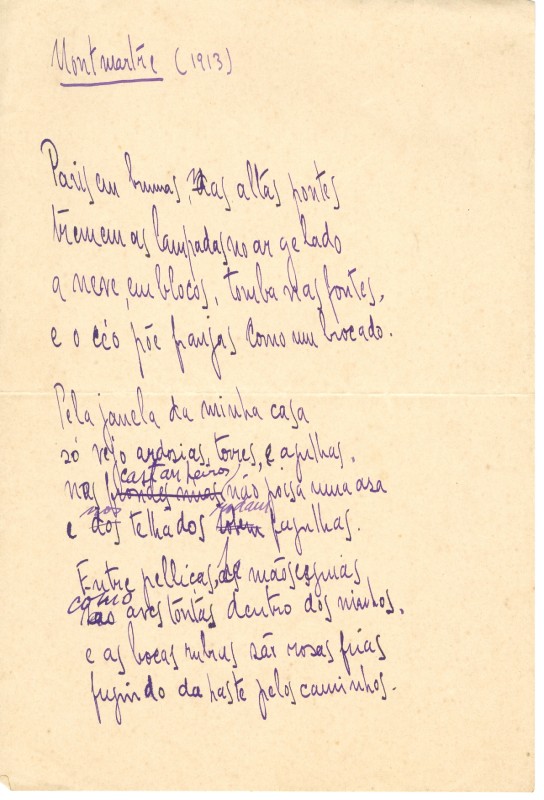 Montmartre (1913)
Paris em brumas, nas altas pontes
tremem as lampadas no ar gelado
a neve, em blocos, tomba nas fontes,
e o céo põe franjas como um brocado.
Pela janela da minha casa
só vejo ardosias, torres, e agulhas,
castanheiros
nos frondes nuas não poisa uma asa
nos rodam
e dos telhados fagulhas.
Entre pelliças, as mãos esguias
como
aves tontas dentro dos ninhos,
e as bocas rubras são rosas frias
fugindo da haste pelos caminhos.